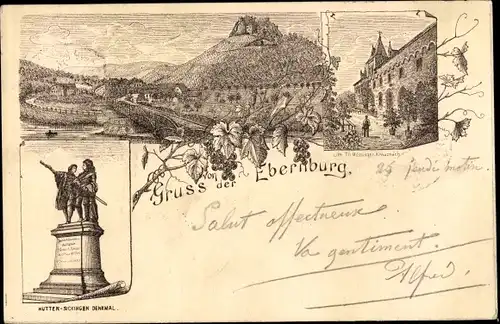 Gruss von der Ebernburg.
25 jeudi matin
Salut affectueux
Va gentiment.
Alfred.
HUTTEN-SICKINGEN DENKMAL.